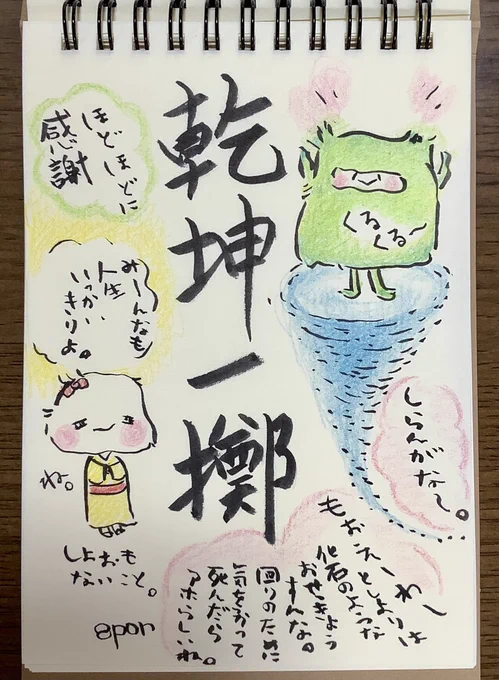 乾坤一擲
ほどほどに
感謝
みーんなも
人生
いっかい
きりよ。
ね。
しょおも
ないこと。
くる〜
くる
しらんがな〜。
もおえーわー
としよりは
化石のような
おせっきょう
すんな。
回りのために
気をつかって
死んだら
アホらしいね。
epon